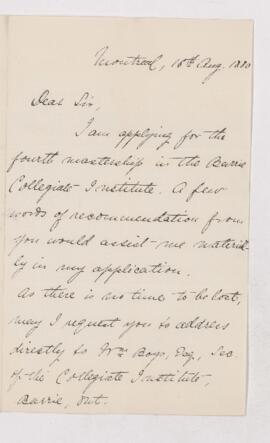 Montreal, 16th Aug. 1880
Dear Sir,
I am applying for the
fourth mastership in the Barrie
Collegiate Institute. A few
words of recommendation from
you would assist me material-
ly in my application.
As there is no time to be lost,
may I request you to address
directly to Wm Boys, Esq., Sec.
of the Collegiate Institute,
Barrie, Ont.